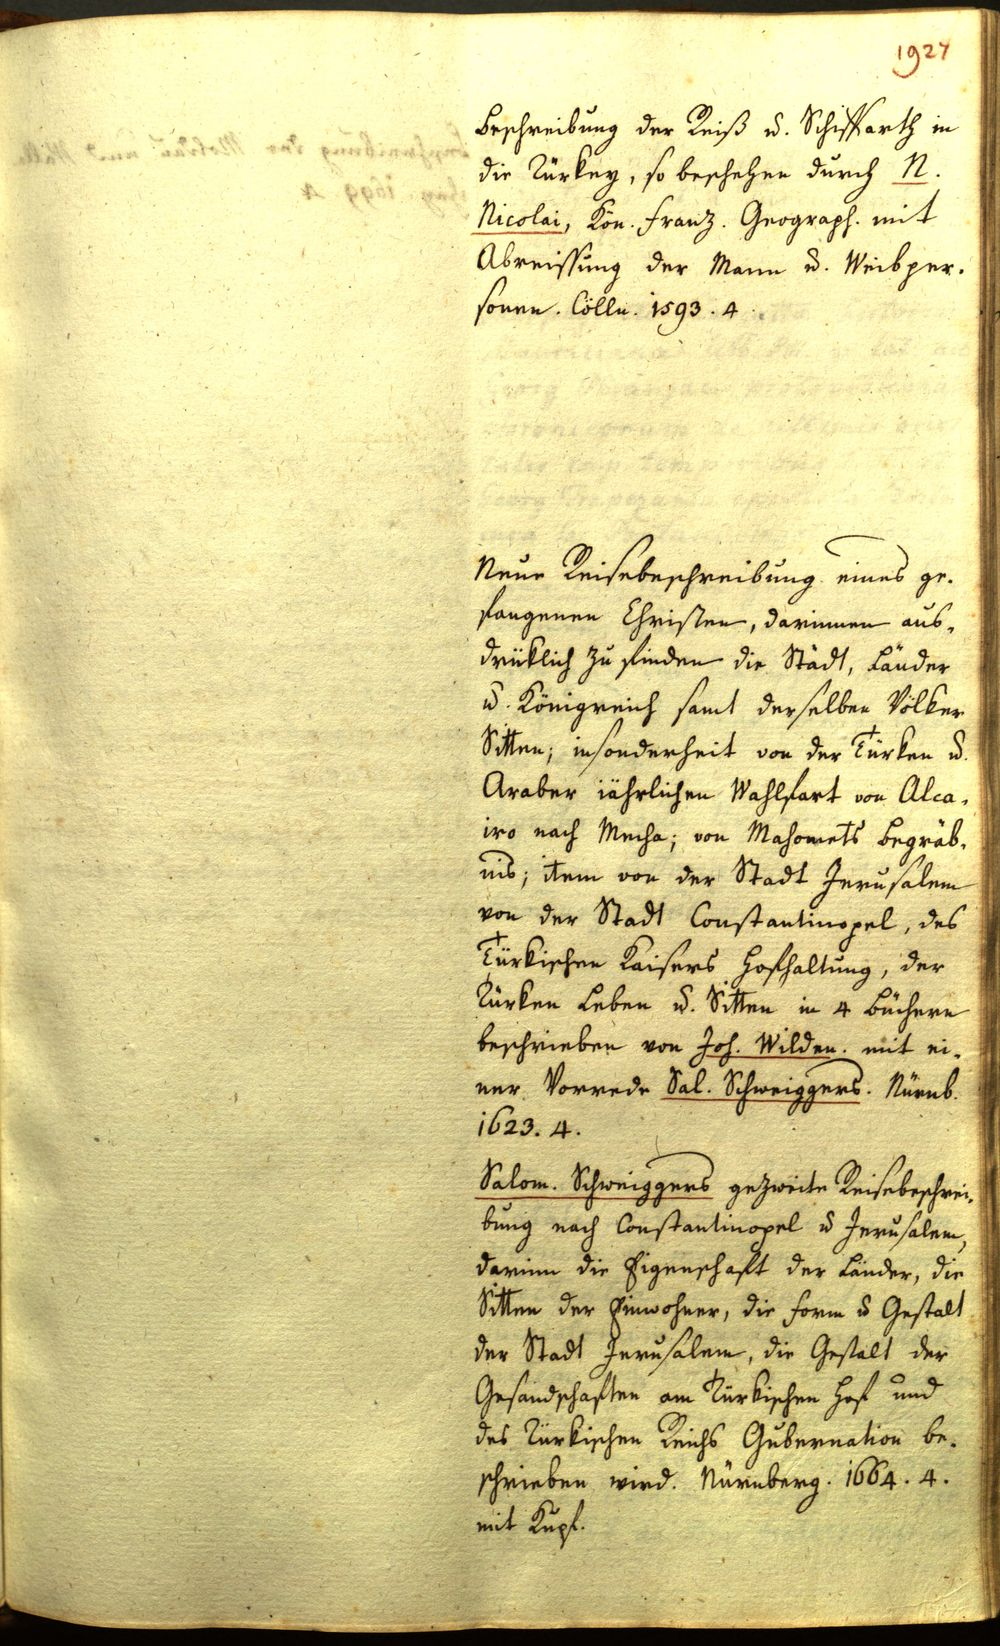 1927
Beschreibung der Reiß u. Schiffarth in
die Türkey, so beschehen durch N.
Nicolai, Kön. Franz. Geograph. mit
Abreissung der Mann u. Weibper-
sonen. Cölln. 1593. 4
Neue Reisebeschreibung eines ge-
fangenen Christen, darinnen aus-
drüklich zu finden die Städt, Länder
u. Königreich samt derselben Völker
Sitten; insonderheit von der Türken u.
Araber jährlichen Wahlfart von Alca-
iro nach Mecha; von Mahomets Begräb-
nis; item von der Stadt Jerusalem
von der Stadt Constantinopel, des
Türkischen Kaisers Hofhaltung, der
Türken Leben u. Sitten in 4 Büchern
beschrieben von Joh. Wilden. mit ei-
ner Vorrede Sal. Schweiggers. Nürnb.
1623. 4.
Salom. Schweiggers gezweite Reisebeschrei-
bung nach Constantinopel u Jerusalem,
darinn die Eigenschaft der Länder, die
Sitten der Einwohner, die Form u Gestalt
der Stadt Jerusalem, die Gestalt der
Gesandschaften am Türkischen Hof und
des Türkischen Reichs Gubernation be-
schrieben wird. Nürnberg. 1664. 4.
mit Kupf.